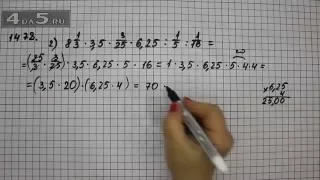 4DA5.RU
1478. 2) 8 1/3 · 3,5 · 3/25 · 6,25 : 1/5 : 1/16 =
= (25/3 · 3/25) · 3,5 · 6,25 · 5 · 16 = 1 · 3,5 · 6,25 · 5 · 4 · 4 =
= (3,5 · 20) · (6,25 · 4) = 70
× 6,25
4
25,00